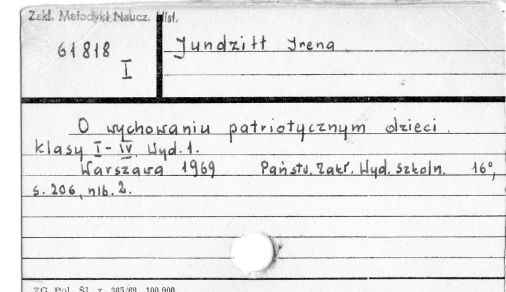 Zakł. Metodyki Naucz. Hist.
61818
I
Jundziłł Irena
O wychowaniu patriotycznym dzieci
klasy I-IV. Wyd. 1.
Warszawa 1969 Państw. Zakł. Wyd. Szkoln. 16°,
s. 206, nlb. 2.
ZG Pol. Śl. z. 365/69 100.000